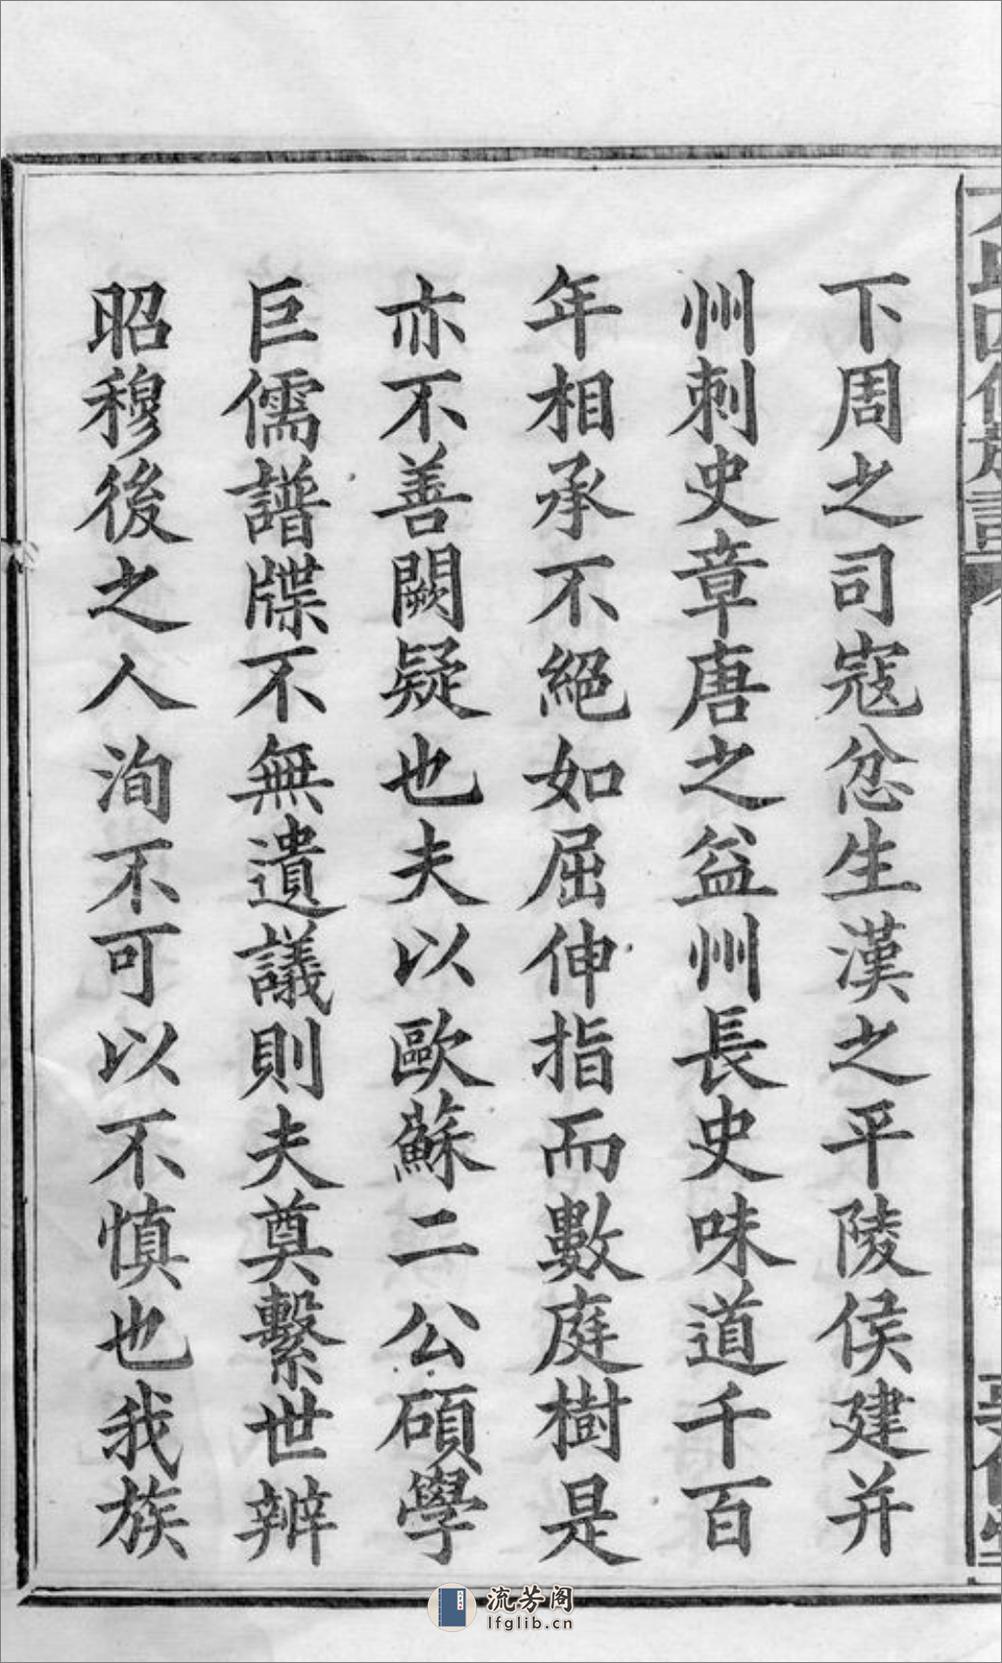 下周之司寇忿生漢之平陵侯建并
州刺史章唐之益州長史味道千百
年相承不絕如屈伸指而數庭樹是
亦不善闕疑也夫以歐蘇二公碩學
巨儒譜牒不無遺議則夫奠繫世辨
昭穆後之人洵不可以不慎也我族
流芳阁
lfglib.cn